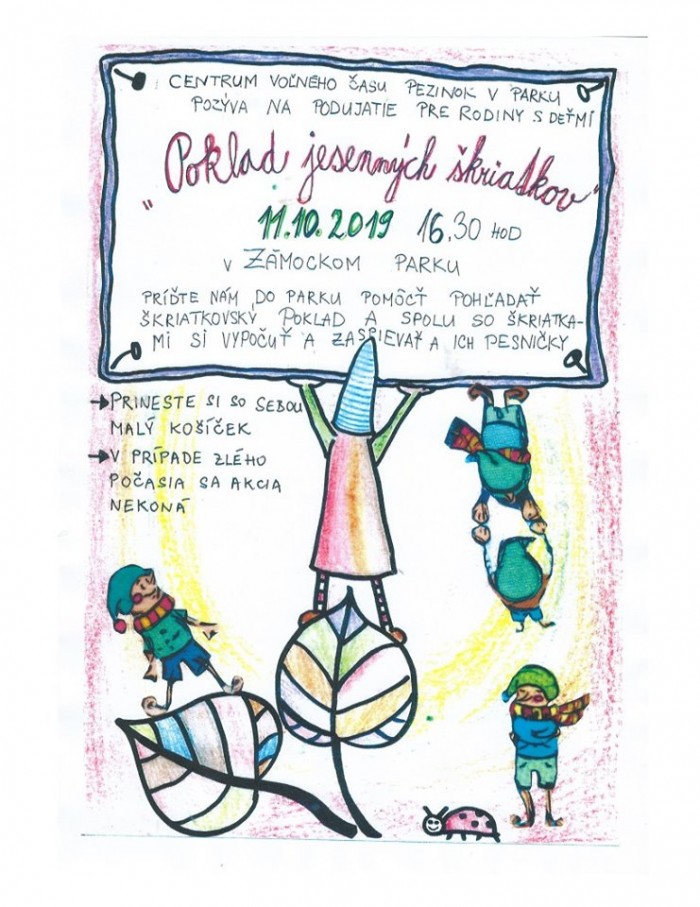 CENTRUM VOĽNÉHO ČASU PEZINOK V PARKU
POZÝVA NA PODUJATIE PRE RODINY S DEŤMI
"Poklad jesenných škriatkov"
11.10.2019 16,30 HOD
V ZÁMOCKOM PARKU
PRÍĎTE NÁM DO PARKU POMÔCŤ POHĽADAŤ
ŠKRIATKOVSKÝ POKLAD A SPOLU SO ŠKRIATKA-
MI SI VYPOČUŤ A ZASPIEVAŤ A ICH PESNIČKY
→PRINESTE SI SO SEBOU
MALÝ KOŠÍČEK
→V PRÍPADE ZLÉHO
POČASIA SA AKCIA
NEKONÁ